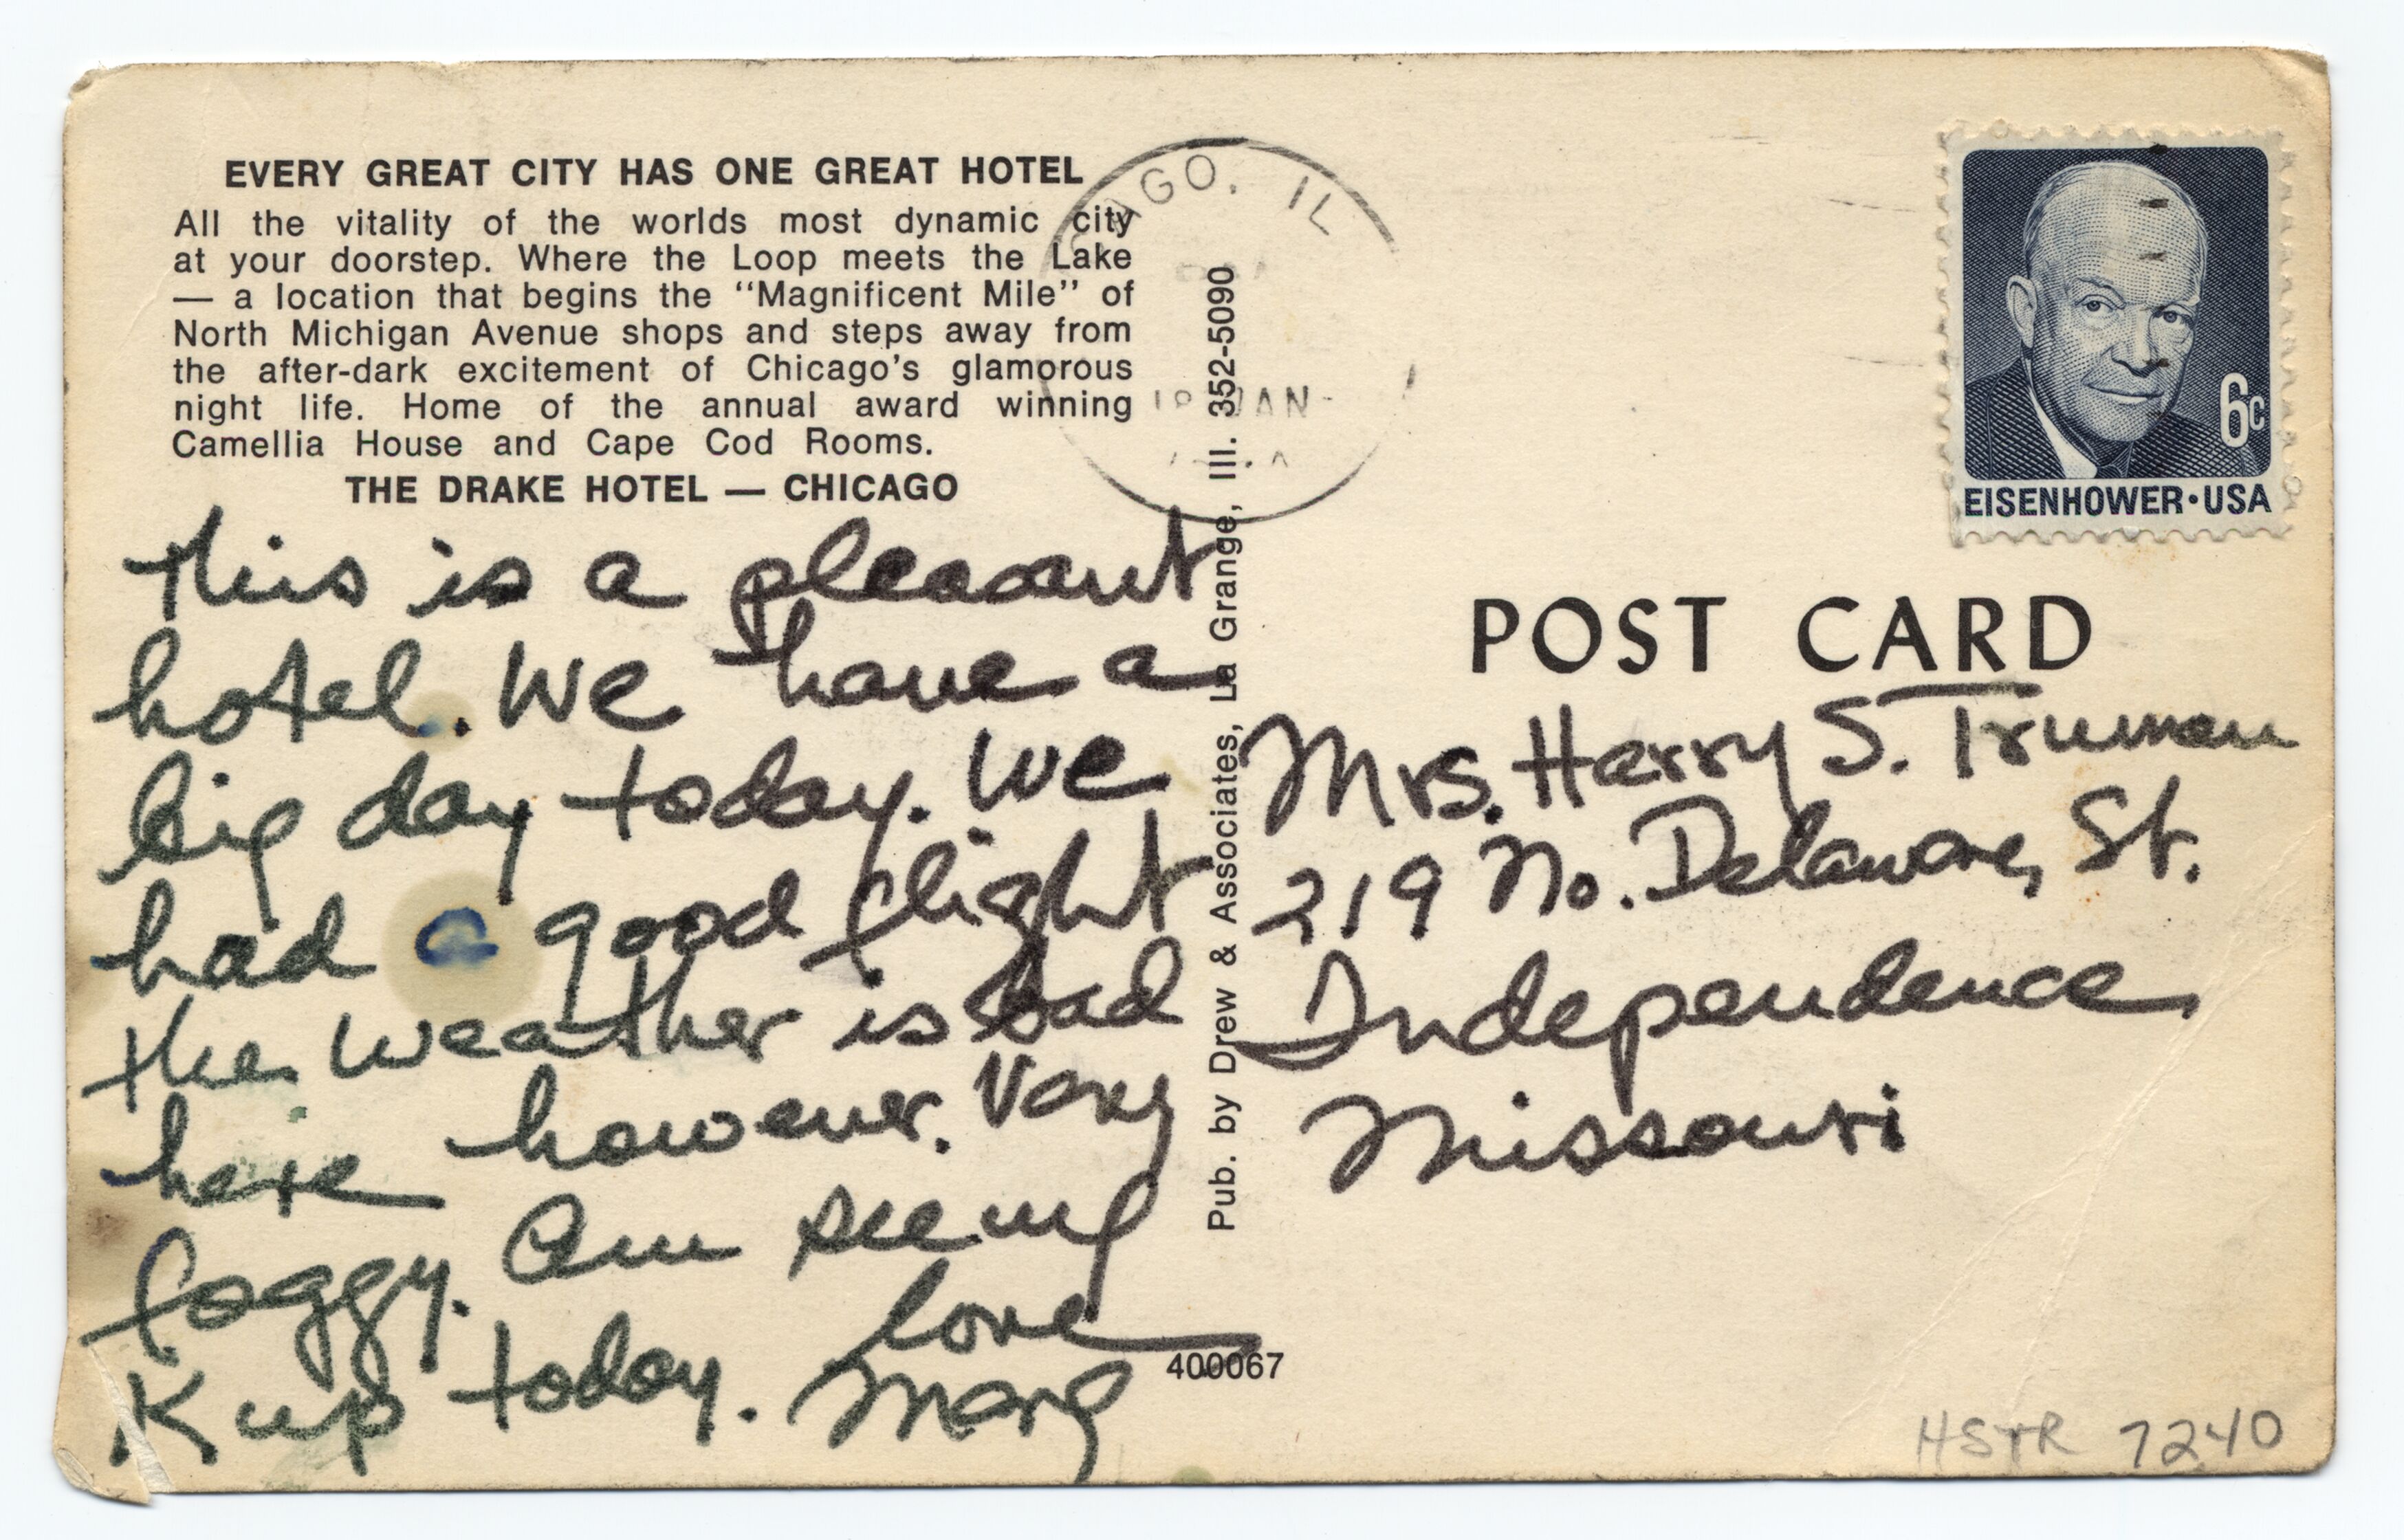 EVERY GREAT CITY HAS ONE GREAT HOTEL
All the vitality of the worlds most dynamic city
at your doorstep. Where the Loop meets the Lake
— a location that begins the “Magnificent Mile” of
North Michigan Avenue shops and steps away from
the after-dark excitement of Chicago’s glamorous
night life. Home of the annual award winning
Camellia House and Cape Cod Rooms.
THE DRAKE HOTEL — CHICAGO
This is a pleasant
hotel. We have a
big day today. We
had a good flight
the weather is bad
here however. Very
foggy. Am seeing
Kup today. love
Marg
Pub. by Drew & Associates, La Grange, Ill. 352-5090
400067
AGO, IL
JAN
6c
EISENHOWER • USA
POST CARD
Mrs. Harry S. Truman
219 No. Delaware, St.
Independence
Missouri
HSTR 7240